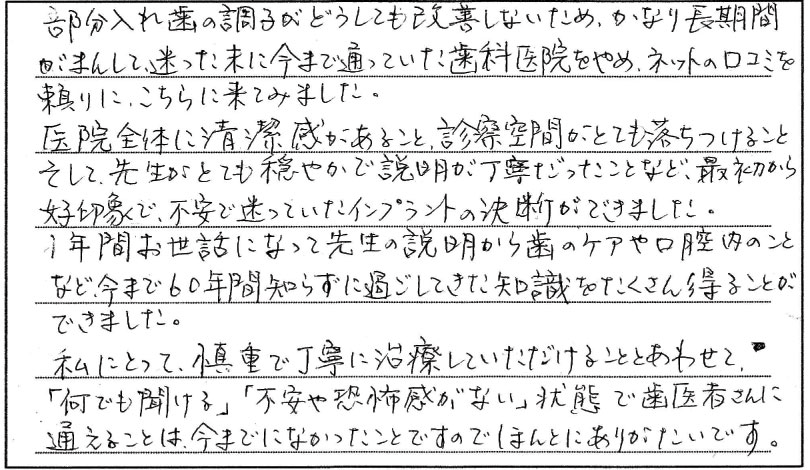 部分入れ歯の調子がどうしても改善しないため、かなり長期間
がまんして、迷った末に今まで通っていた歯科医院をやめ、ネットの口コミを
頼りに、こちらに来てみました。
医院全体に清潔感があること、診察空間がとても落ちつけること
そして、先生がとても穏やかで説明が丁寧だったことなど、最初から
好印象で、不安で迷っていたインプラントの決断ができました。
1年間お世話になって先生の説明から歯のケアや口腔内のこと
など、今まで60年間知らずに過ごしてきた知識をたくさん得ることが
できました。
私にとって、慎重で丁寧に治療していただけることとあわせて、
「何でも聞ける」「不安や恐怖感がない」状態で歯医者さんに
通えることは、今までになかったことですのでほんとにありがたいです。